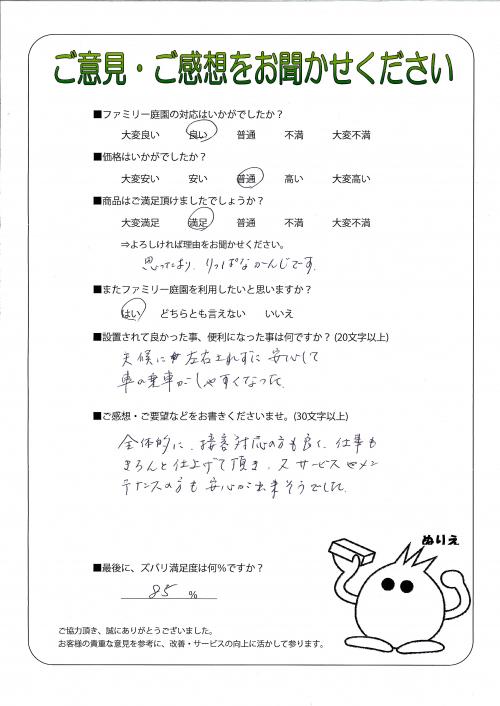 ご意見・ご感想をお聞かせください
■ファミリー庭園の対応はいかがでしたか？
大変良い 良い 普通 不満 大変不満
■価格はいかがでしたか？
大変安い 安い 普通 高い 大変高い
■商品はご満足頂けましたでしょうか？
大変満足 満足 普通 不満 大変不満
⇒よろしければ理由をお聞かせください。
思ったより、りっぱなかんじです。
■またファミリー庭園を利用したいと思いますか？
はい どちらとも言えない いいえ
■設置されて良かった事、便利になった事は何ですか？(20文字以上)
天候に左右されずに安心して
車の乗車がしやすくなった
■ご感想・ご要望などをお書きくださいませ。(30文字以上)
全体的に、接客対応の方も良く、仕事も
きちんと仕上げて頂き、サービスやメン
テナンスの方も安心が出来そうでした。
ぬりえ
■最後に、ズバリ満足度は何%ですか？
85 %
ご協力頂き、誠にありがとうございました。
お客様の貴重な意見を参考に、改善・サービスの向上に活かして参ります。